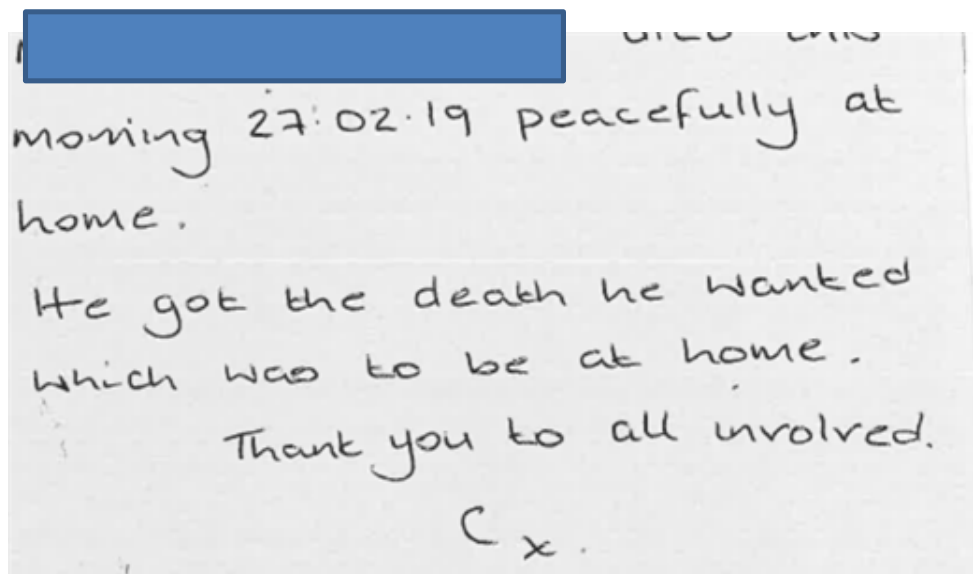 died this
morning 27:02.19 peacefully at
home.
He got the death he wanted
which was to be at home.
Thank you to all involved.
C x.